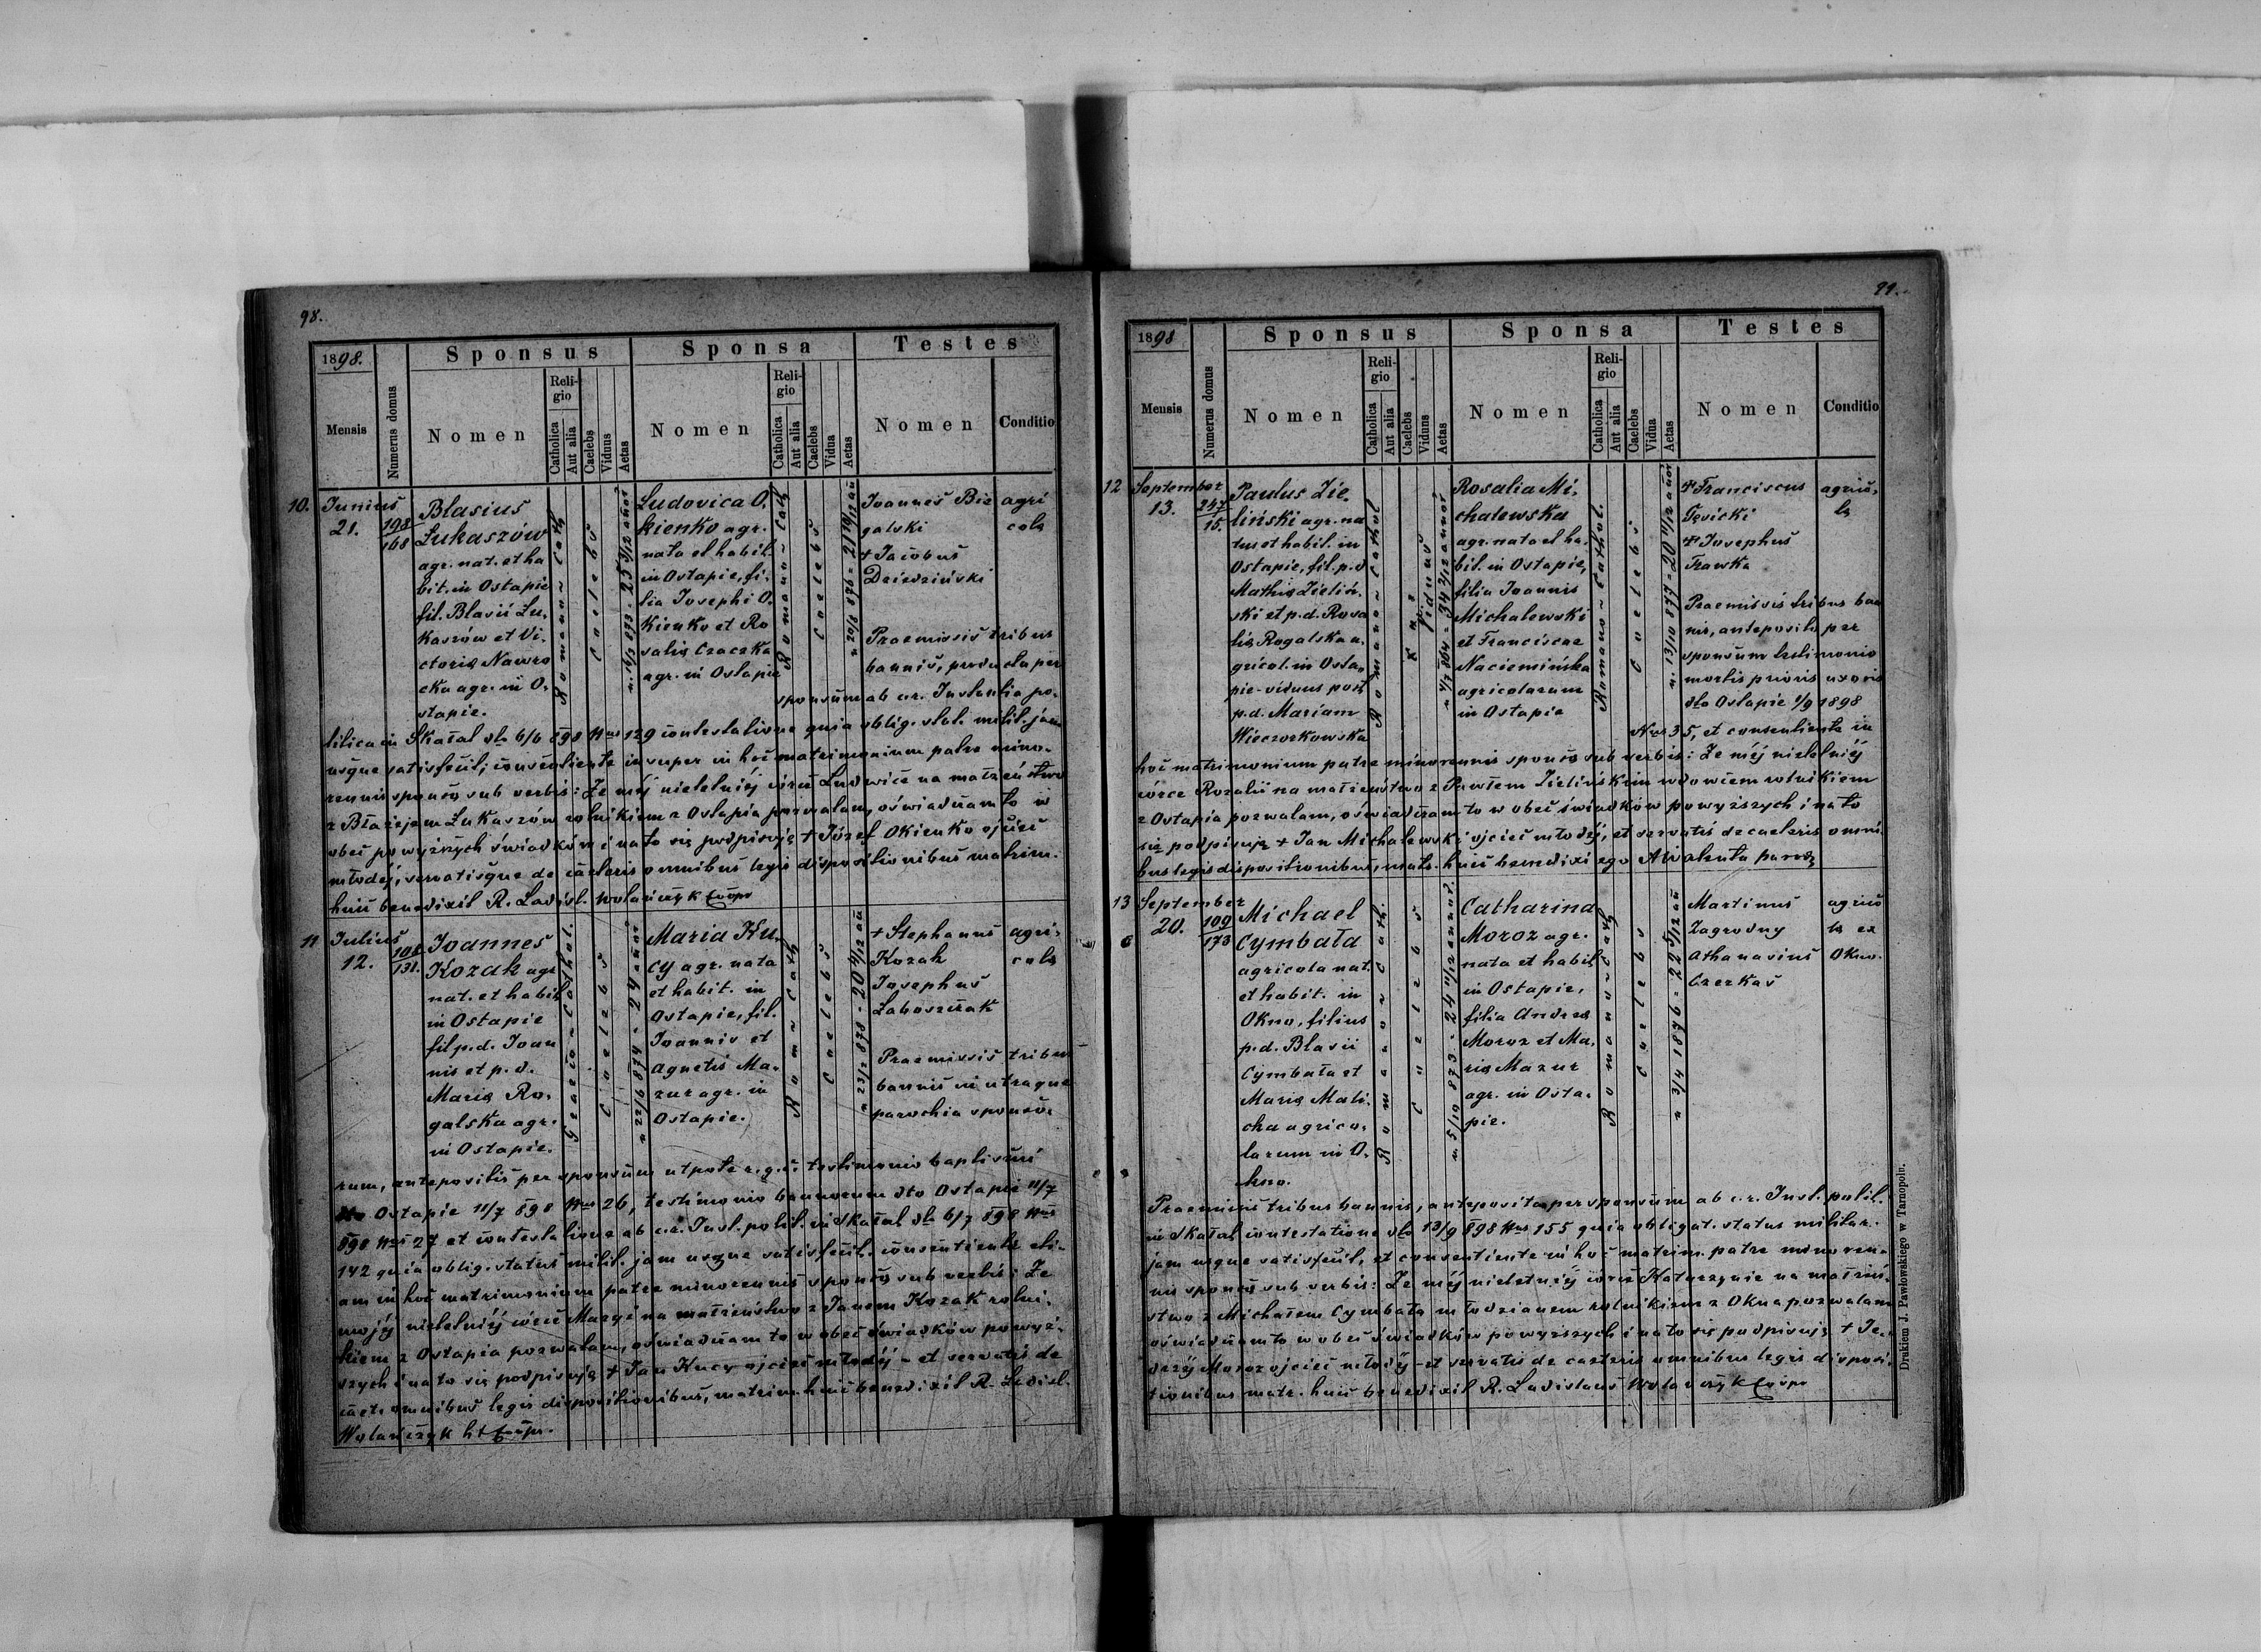 98.
1898.
Sponsus
Sponsa
Testes
Mensis
Numerus domus
Nomen
Religio
Catholica
Aut alia
Caelebs
Viduus
Aetas
Nomen
Religio
Catholica
Aut alia
Caelebs
Vidua
Aetas
Nomen
Conditio
10.
Junius
21.
198
168
Blasius
Łukaszów
agr. nat. et ha
bit. in Ostapie
fil. Blasii Łu,
kaszów et Vi,
ctoria Nawro
cka agr. in O,
stapie.
Romano-cath
Coelebs
n. 14/3 873 - 25 3/12 annor
Ludovica O,
kienko agr.
nata et habit.
in Ostapie, fi,
lia Josephi O,
kienko et Ro
salia Czaczka
agr. in Ostapie
Romano-cath
Coelebs
Joannes Bie
galski
+ Jacobus
Dziedziński
agri
cola
Praemissis tribus
bannis, producta per
sponsum ab c.r. Instantia po,
litica in Skałat dto 6/6 898 Nus 129 contestatione quia oblig. stat. milit. jam
usque satisfecit; consentiente insuper in hoc matrimonium patre mino,
rennis sponsa sub verbis: Że mój nieletniéj córce Ludwice na małżeństwo
z Błażejem Łukaszów rolnikiem z Ostapia pozwalam, oświadczam to w
obec powyższych świadków i na to się podpisuję + Józef Okienko ojciec
młodéj, servatisque de caeteris omnibus legis dispositionibus matrim.
huic benedixit R. Ladisl. Wolańczyk Coop
11
Julius
12.
108
131.
Joannes
Kozak agr
nat. et habit
in Ostapie
fil p.d. Joan
nis et p.d.
Maria Ro,
galska agr.
in Ostapie.
Graeco-Cathol.
Coelebs
n 22/6 874 - 24 annor
Maria Ku,
cy agr. nata
et habit. in
Ostapie, fil.
Joannis et
Agnetis Ma,
zur agr. in
Ostapie.
Rom-Cath
Coelebs
n 23/2 878 - 20 4/12 an
+ Stephanus
Kozak
Josephus
Łaboszczak
agri,
cola
Praemissis tribus
bannis in utraque
parochia sponso,
rum, antepositis per sponsum utpote r. g. c. testimonio baptismi
dto Ostapie 11/7 898 Nus 26, testimonio bannorum dto Ostapie 11/7
898 Nus 27 et contestatione ab c.r. Inst. polit. in Skałat dto 6/7 898 Nus
142 quia oblig. status milit. jam usque satisfecit. consentiente eti,
am in hoc matrimonium patre minorennis sponsa sub verbis: Że
mojéj nieletniéj córce Maryi na małżeństwo z Janem Kozak rolni,
kiem z Ostapia pozwalam, oświadczam to w obec świadków powyż,
szych i na to się podpisuję + Jan Kucy ojciec młodéj - et servatis de
caet. omnibus legis dispositionibus, matrim. huic benedixit R. Ladisl.
Wolańczyk Coop.
99.
1898
Sponsus
Sponsa
Testes
Mensis
Numerus domus
Nomen
Religio
Catholica
Aut alia
Caelebs
Viduus
Aetas
Nomen
Religio
Catholica
Aut alia
Caelebs
Vidua
Aetas
Nomen
Conditio
12
September
13.
247
15.
Paulus Zie,
liński agr. na
tus et habit. in
Ostapie, fil. p.d
Mathia Zieliń,
ski et p.d. Rosa
lia Rogalska a,
gricol. in Osta,
pie - viduus post
p.d. Mariam
Wieczorkowska
Romano-Cathol
Viduus
n 4/7 864 = 34 2/12 annor
Rosalia Mi,
chalewska
agr. nata et ha,
bit. in Ostapie,
filia Joannis
Michalewski
et Franciscae
Naciemińska
agricolarum
in Ostapie
Romano-Cathol.
Coelebs
n. 13/10 877 = 20 11/12 annor
+ Franciscus
Tęvicki
+ Josephus
Trawka
agrico,
la
Praemissis tribus ban
nis, anteposito per
sponsum testimonio
mortis prioris uxoris
dto Ostapie 1/9 1898
Nus 35, et consentiente in
hoc matrimonium patre minorennis sponsa sub verbis: Że méj nieletniéj
córce Rozalii na małżeństwo z Pawłem Zielińskim wdowcem rolnikiem
z Ostapia pozwalam, oświadczam to w obec świadków powyższych i na to
się podpisuję + Jan Michalewski ojciec młodéj, et servatis de caeteris omni,
bus legis dispositionibus, matr. huic benedixi ego
13
September
20.
109
173
Michael
Cymbała
agricola nat.
et habit. in
Okno, filius
p.d. Blasii
Cymbała et
Maria Mali,
cha agrico,
larum in O,
kno.
Romano-Cath.
Coelebs
n. 5/10 873 - 24 11/12 annor.
Catharina
Moroz agr.
nata et habit
in Ostapie,
filia Andrea
Moroz et Ma,
ria Mazur
agr. in Osta,
pie.
Romano-Cath
Coelebs
n 3/4 1876 - 22 5/12 an
Martinus
Zagrodny
Athanasius
Czerkas
agrico
la ex
Okno.
Praemissis tribus bannis, anteposita per sponsum ab c.r. Inst. polit.
in Skałat contestatione dto 13/9 898 Nus 155 quia obligat. status militar.
jam usque satisfecit, et consentiente in hoc matrim. patre minoren,
nis sponsa sub verbis: Że méj nieletniéj córce Katarzynie na małżeń,
stwo z Michałem Cymbała młodzianem rolnikiem z Okna pozwalam
oświadczam to w obec świadków powyższych i na to się podpisuję + Ję,
drzéj Moroz ojciec młodéj - et servatis de caeteris omnibus legis disposi,
tionibus matr. huic benedixit R. Ladislaus Wolańczyk Coop
Drukiem J. Pawłowskiego w Tarnopolu.